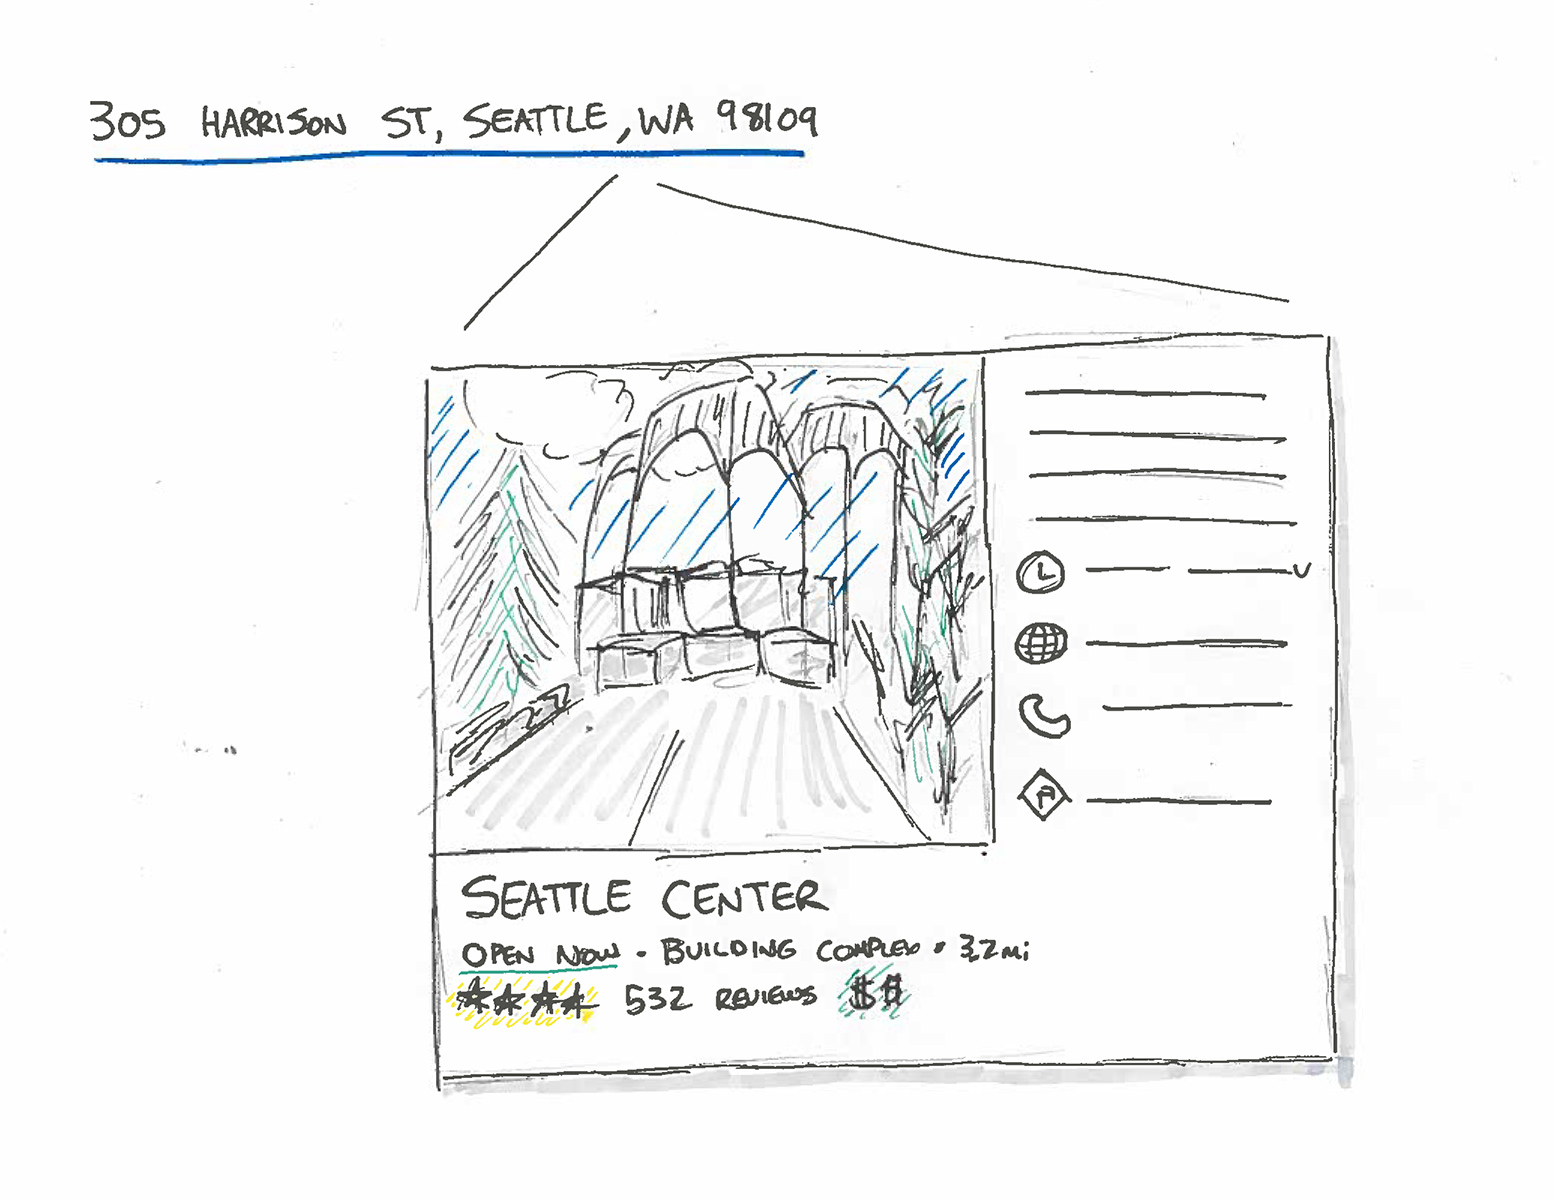 305 HARRISON ST, SEATTLE, WA 98109
SEATTLE CENTER
OPEN NOW · BUILDING COMPLEX · 3.2mi
★★★★ 532 REVIEWS $$
P